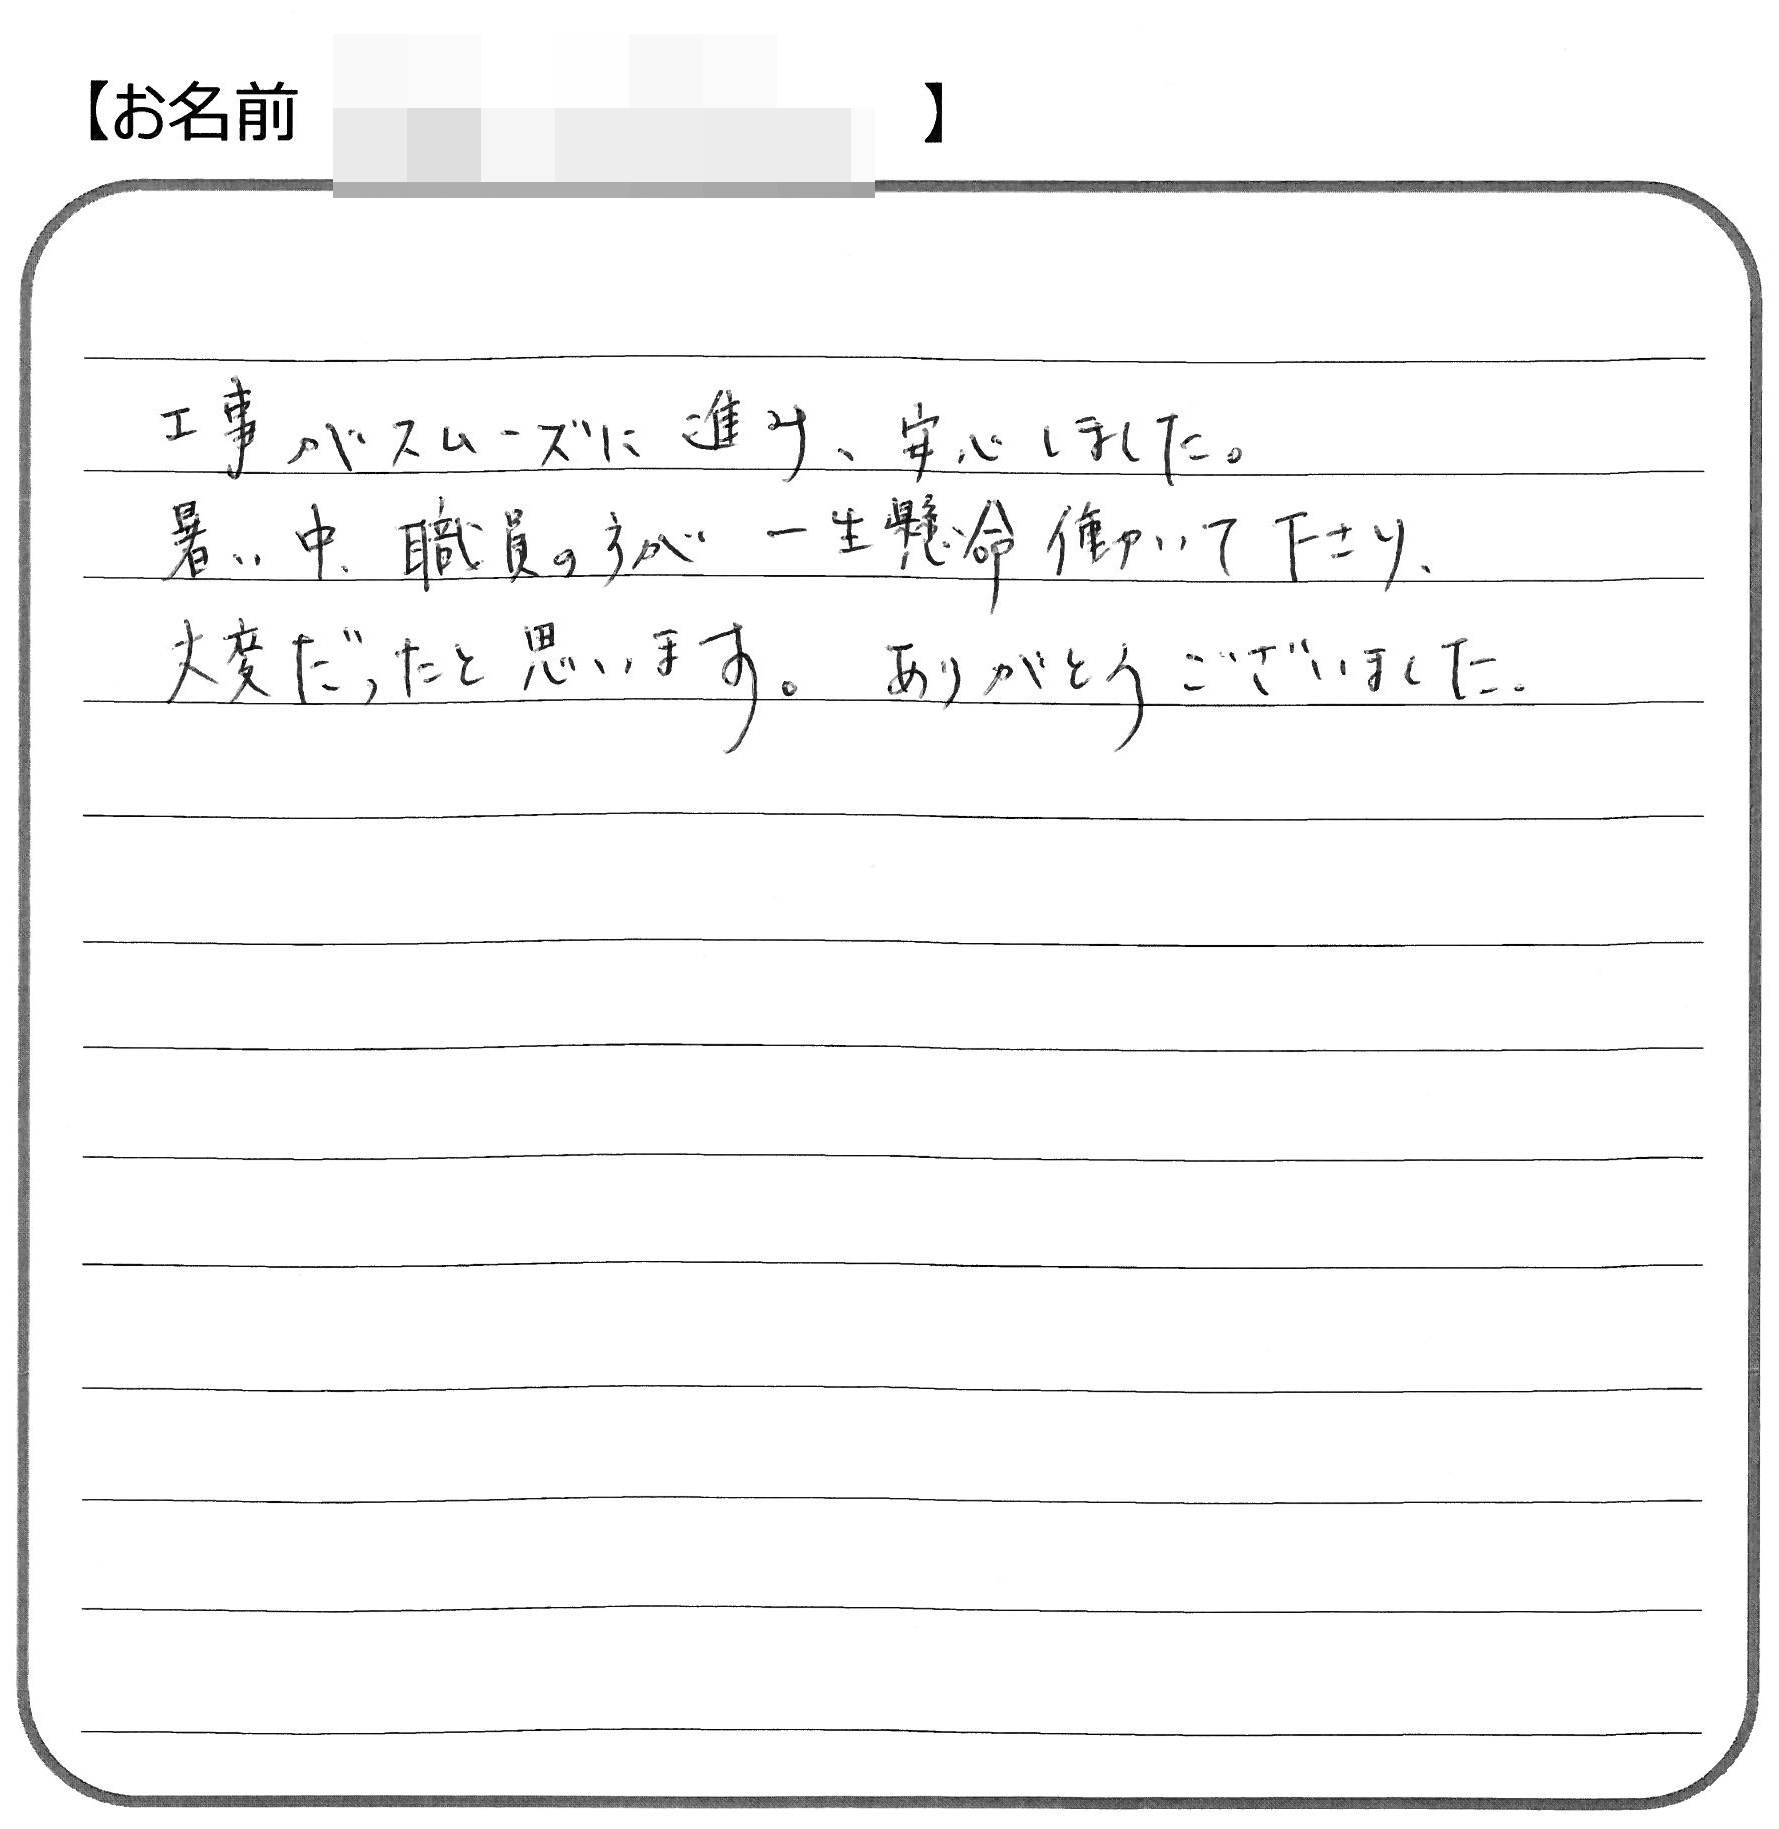 【お名前 】
工事がスムーズに進み、安心しました。
暑い中、職員の方が一生懸命働いて下さり、
大変だったと思います。ありがとうございました。